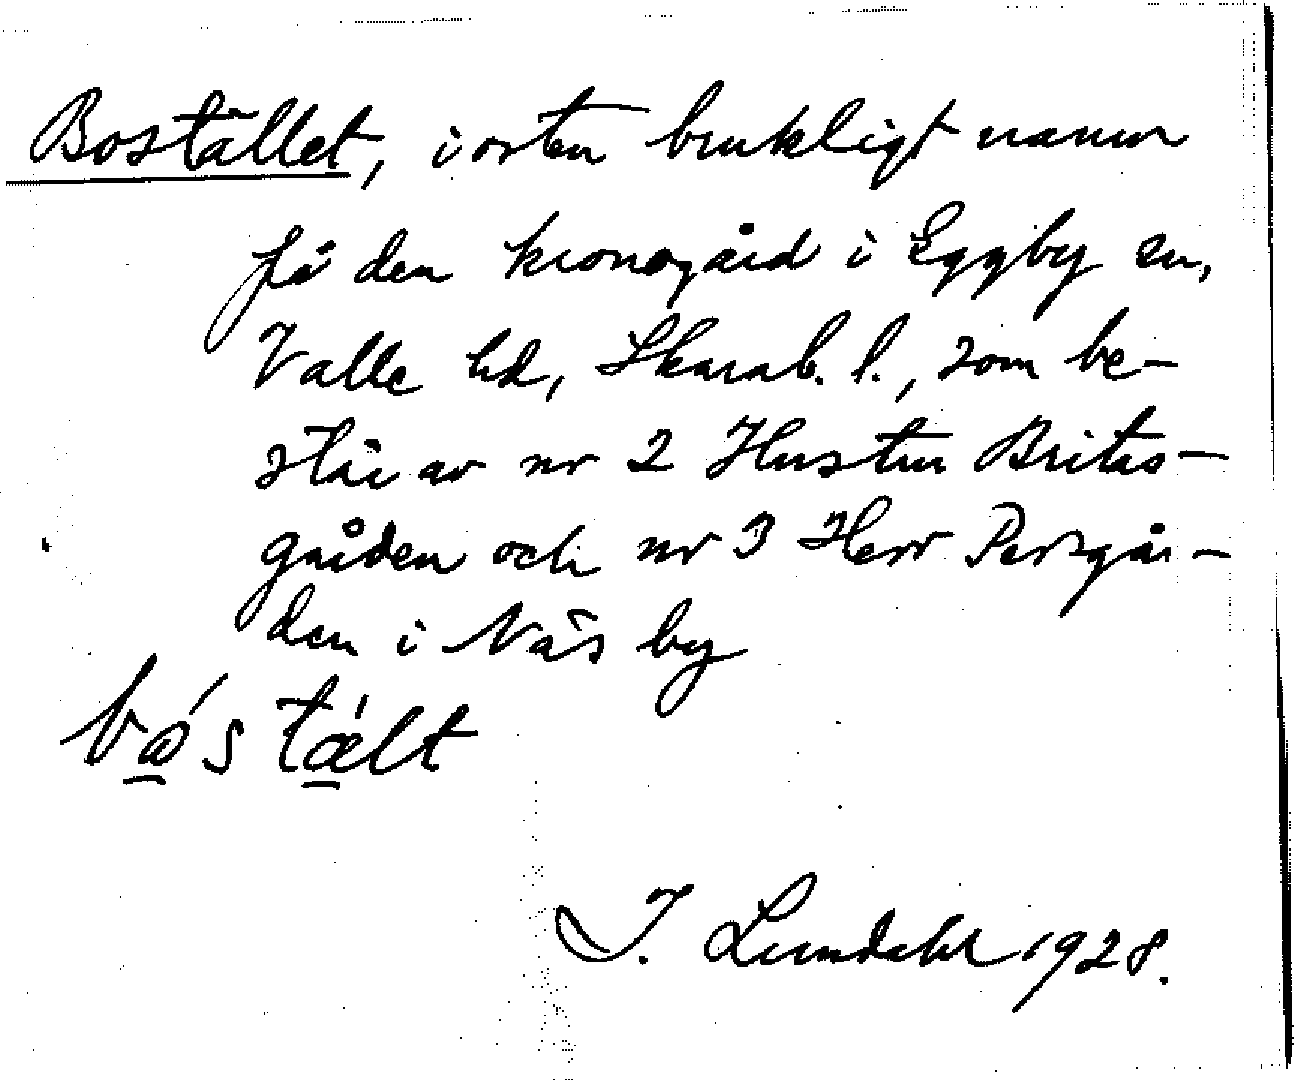 Bostället, i orten brukligt namn
på den kronogård i Eggby sn,
Valle hd, Skarab. l., som be-
står av nr 2 Hustru Britas-
gården och nr 3 Herr Persgår-
den i Näs by
I. Lundahl 1928.